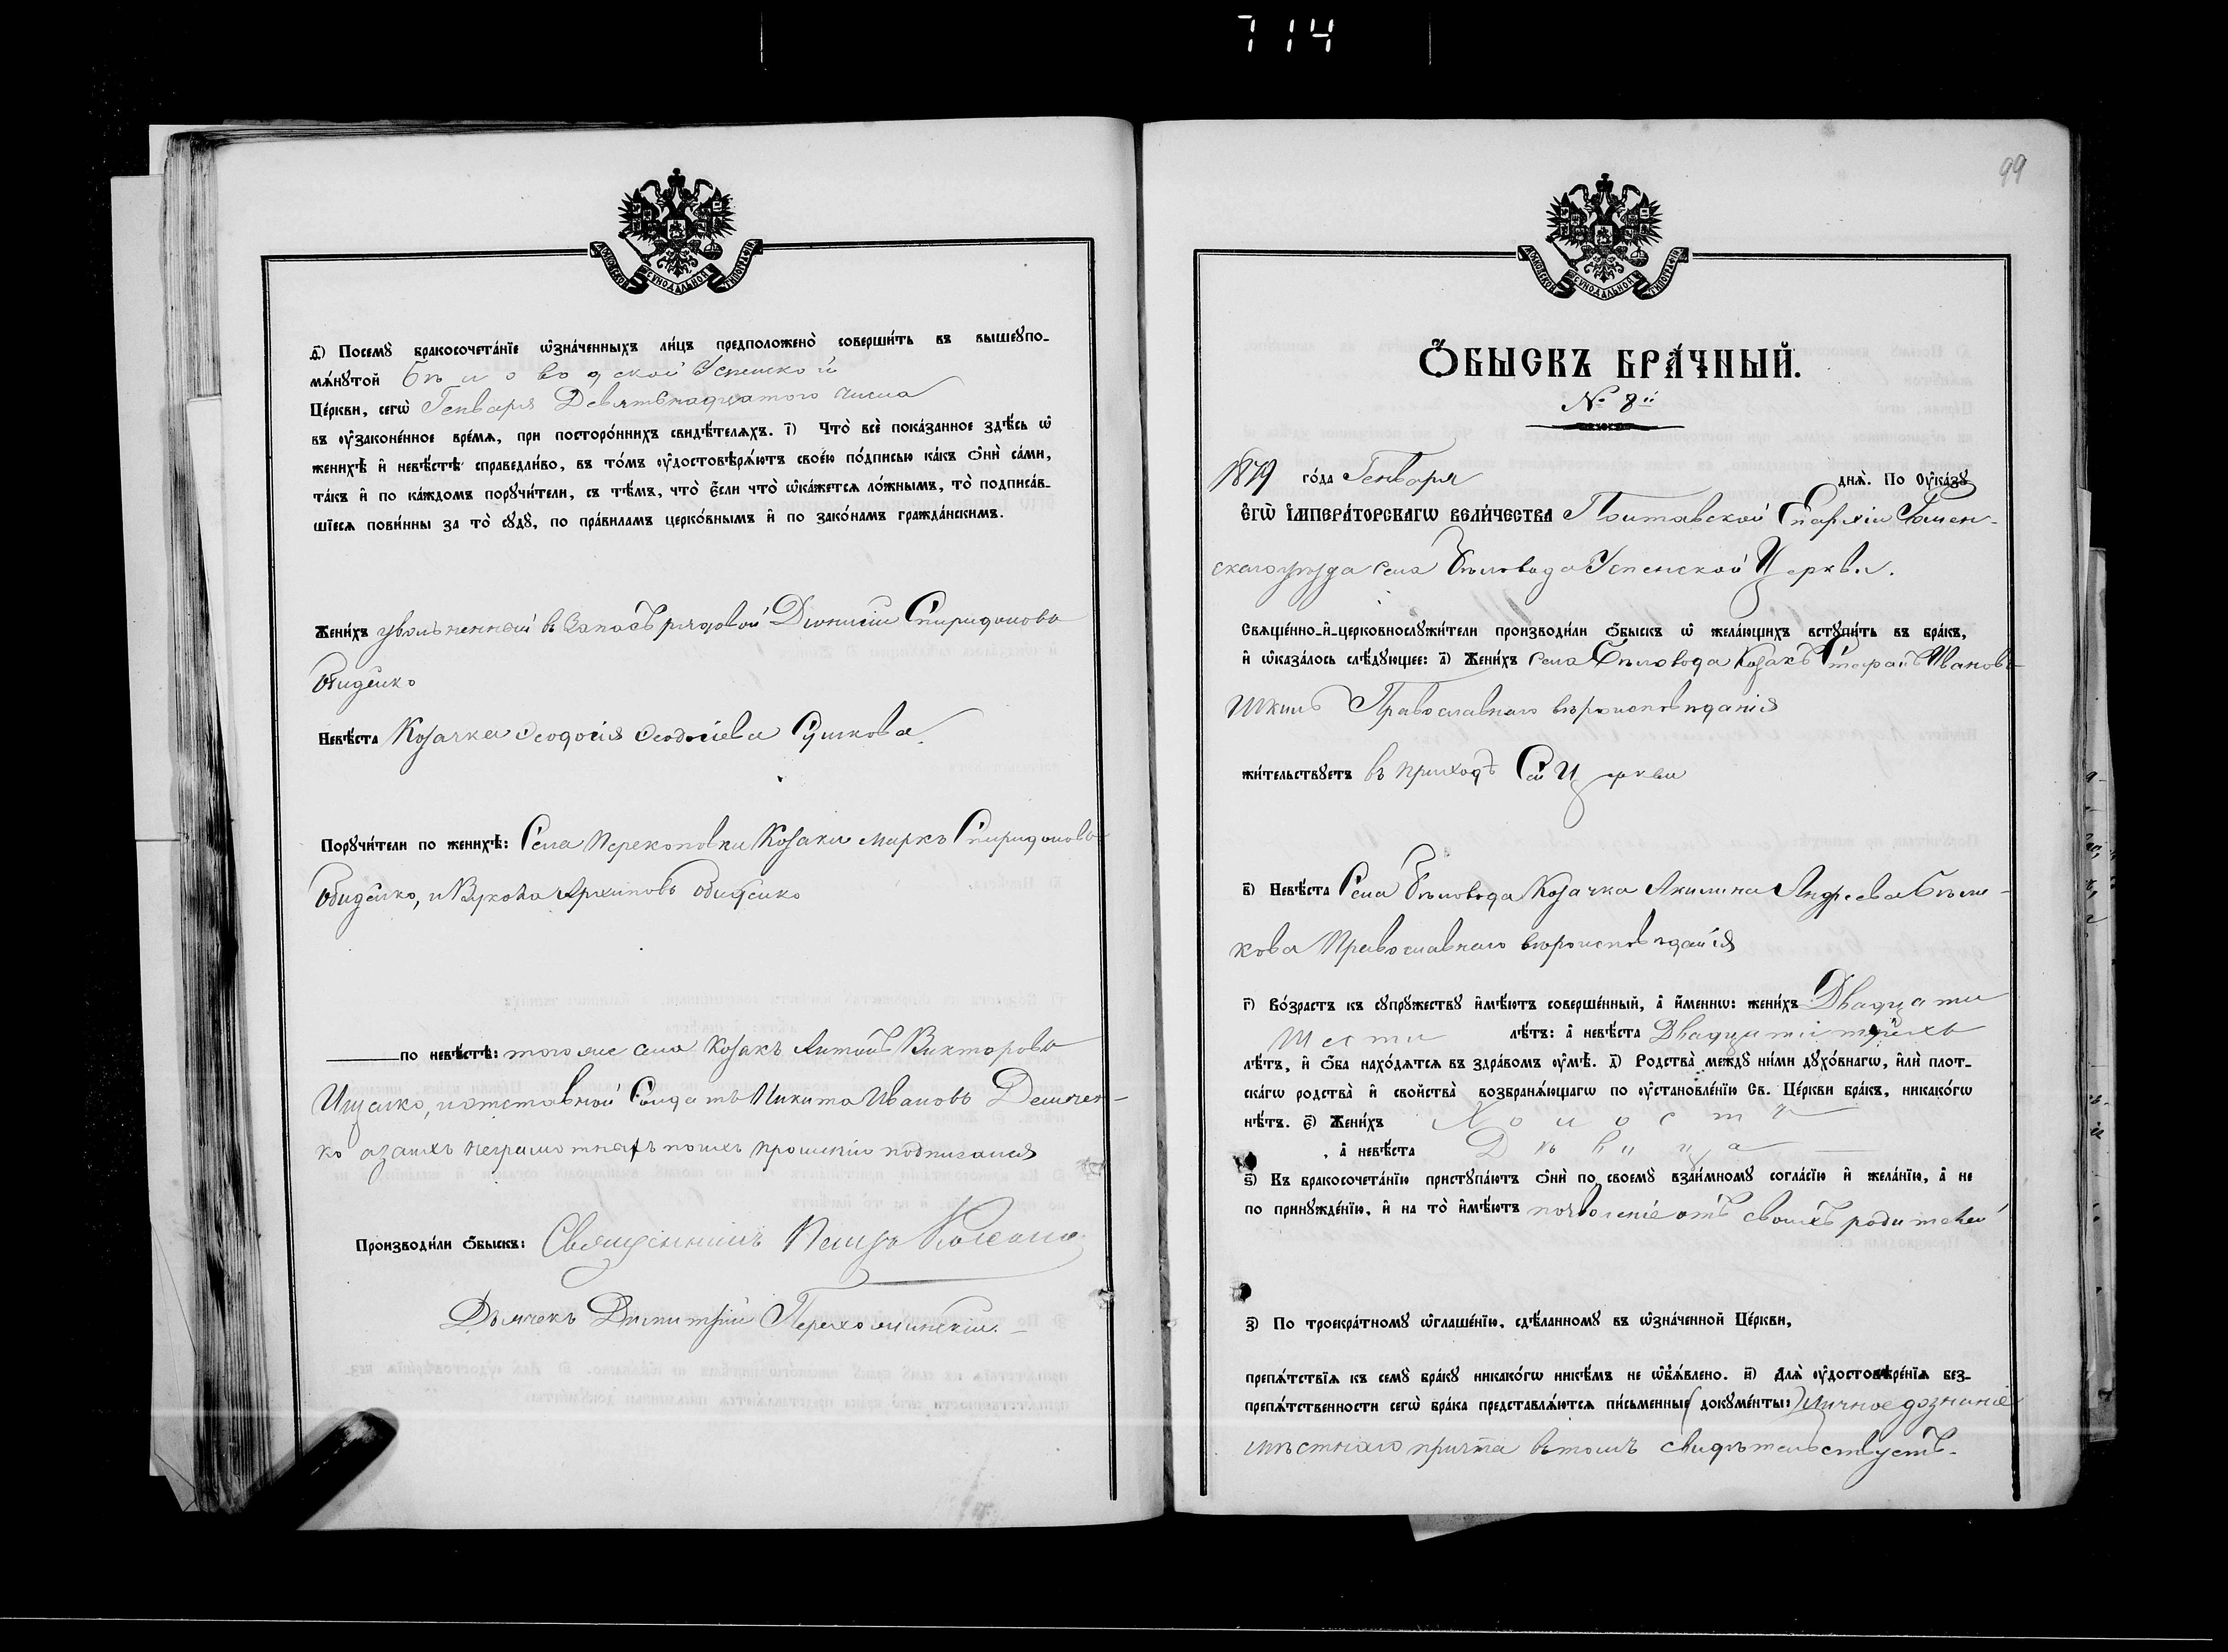 714
МОСКОВСКОЙ СѴНОДАЛЬНОЙ ТИПОГРАФІИ
д҃) Посемꙋ̀ бракосочета́нїе ѡ҆зна́ченныхъ ли́цъ предположено̀ соверши́ть въ вышеꙋпо-
мѧ́нꙋтой Бѣловодской Успенской
Це́ркви, сегѡ̀ Генваря Девятьнадцатого числа
въ ᲂу҆законе́нное вре́мѧ, при посторо́ннихъ свидѣ́телѧхъ. і҃) Что̀ всѐ пока́занное здѣ́сь ѡ҆
женихѣ̀ и҆ невѣ́стѣ справедли́во, въ то́мъ ᲂу҆достовѣрѧ́ютъ свое́ю по́дписью ка́къ ѻ҆нѝ са́ми,
та́къ и҆ по ка́ждомъ порꙋчи́тели, съ тѣ́мъ, что̀ є҆́сли что̀ ѡ҆ка́жетсѧ ло́жнымъ, то̀ подписа́в-
шїесѧ пови́нны за то̀ сꙋдꙋ̀, по пра́виламъ церко́внымъ и҆ по зако́намъ гражда́нскимъ.
Жени́хъ уволъненный въ Запасъ рядовой Діонисій Спиридоновъ
Обидейко
Невѣ́ста Козачка Ѳеодосія Ѳеодосіева Сушкова
Порꙋчи́тели по женихѣ̀: Села Перекоповки Козаки Маркъ Спиридоновъ
Обидейко, и Архиповъ Обидейко
по невѣ́стѣ: того же села Козакъ Антонъ Викторовъ
Ищенко, и отставной Солдатъ Никита Ивановъ Демчен-
ко а за нихъ неграмотныхъ по ихъ прошенію подписался
Производи́ли ѻ҆́быскъ: Священникъ Петръ
Дьячекъ Димитрій
99
МОСКОВСКОЙ СѴНОДАЛЬНОЙ ТИПОГРАФІИ
Ѻ҆́БЫСКЪ БРА́ЧНЫЙ.
№ 8й
1879 го́да Генваря днѧ̀. По Оу҆ка́зꙋ
Є҆гѡ̀ І҆мпера́торскагѡ Вели́чества Полтавской Епархіи Ромен-
скаго уезда села Бѣловода Успенской Церкви.
Свѧще́нно-и҆-церковнослꙋжи́тели производи́ли ѻ҆́быскъ ѡ҆ жела́ющихъ встꙋпи́ть въ бра́къ,
и҆ ѡ҆каза́лось слѣ́дꙋющее: а҃) Жени́хъ Села Бѣловода Козакъ Стефанъ Ивановъ
Шкиль Православнаго вѣроисповѣданія
жи́тельствꙋетъ въ приходѣ Сей Церкви
в҃) Невѣ́ста Села Бѣловода Козачка Акилина Андреева Бѣли-
кова Православнаго вѣроисповѣданія
г҃) Во́зрастъ къ сꙋпрꙋ́жествꙋ и҆мѣ́ютъ соверше́нный, а҆ и҆́меннѡ: жени́хъ Двадцати
шести лѣ́тъ: а҆ невѣ́ста Двадцати трехъ
лѣ́тъ, и҆ ѻ҆́ба нахо́дѧтсѧ въ здра́вомъ ᲂу҆мѣ̀. д҃) Родства̀ междꙋ̀ ни́ми дꙋхо́внагѡ, и҆лѝ плот-
ска́гѡ родства̀ и҆ свойства̀ возбранѧ́ющагѡ по ᲂу҆становле́нїю Св. Це́ркви бра́къ, никако́гѡ
нѣ́тъ. є҃) Жени́хъ Холостъ
, а҆ невѣ́ста Дѣвица
ѕ҃) Къ бракосочета́нїю приступа́ютъ ѻ҆нѝ по своемꙋ̀ взаи́мномꙋ согла́сїю и҆ жела́нїю, а҆ не
по принꙋжде́нїю, и҆ на то̀ и҆мѣ́ютъ позволеніе отъ своихъ родителей
з҃) По троекра́тномꙋ ѡ҆глаше́нїю, сдѣ́ланномꙋ въ ѡ҆зна́ченной Це́ркви,
препѧ́тствїѧ къ семꙋ̀ бра́кꙋ никако́гѡ никѣ́мъ не ѡ҆б̾ѧ́влено. и҃) Длѧ̀ ᲂу҆достовѣре́нїѧ без-
препѧ́тственности сегѡ̀ бра́ка представлѧ́ютсѧ пи́сьменные (докуме́нты:) личное дознаніе
мѣстнаго причта въ томъ свидѣтельствуетъ.